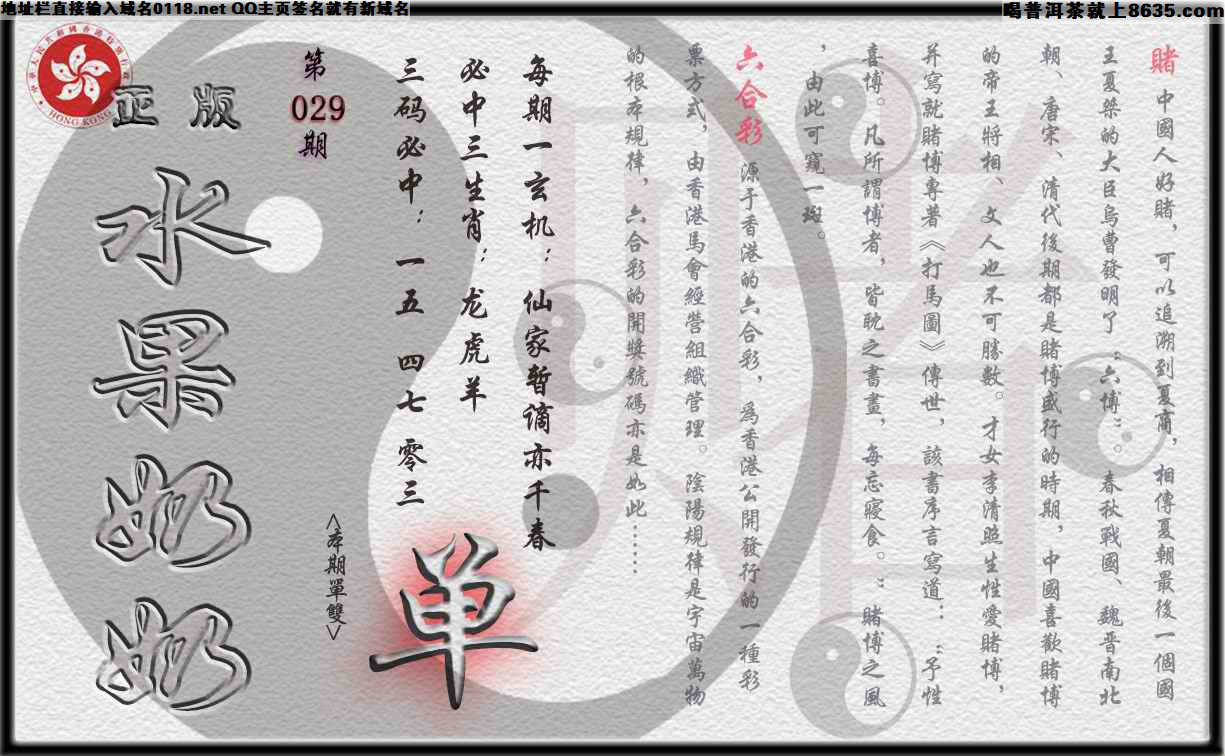 地址栏直接输入域名0118.net QQ主页签名就有新域名
喝普洱茶就上8635.com
賭 中國人好賭，可以追溯到夏商，相傳夏朝最後一個國
王夏桀的大臣烏曹發明了“六博”。春秋戰國、魏晋南北
朝、唐宋、清代後期都是賭博盛行的時期，中國喜歡賭博
的帝王將相、文人也不可勝數。才女李清照生性愛賭博，
并寫就賭博專著《打馬圖》傳世，該書序言寫道：：“予性
喜博。凡所謂博者，皆耽之書畫，每忘寢食。”賭博之風
，由此可窺一斑。
六合彩 源于香港的六合彩，爲香港公開發行的一種彩
票方式，由香港馬會經營組織管理。陰陽規律是宇宙萬物
的根本規律，六合彩的開獎號碼亦是如此……
每期一玄机：仙家暂谪亦千春
必中三生肖：龙虎羊
三码必中：一五 四七 零三
单
<本期單雙>
第
029
期
正版
水果奶奶
HONG KONG